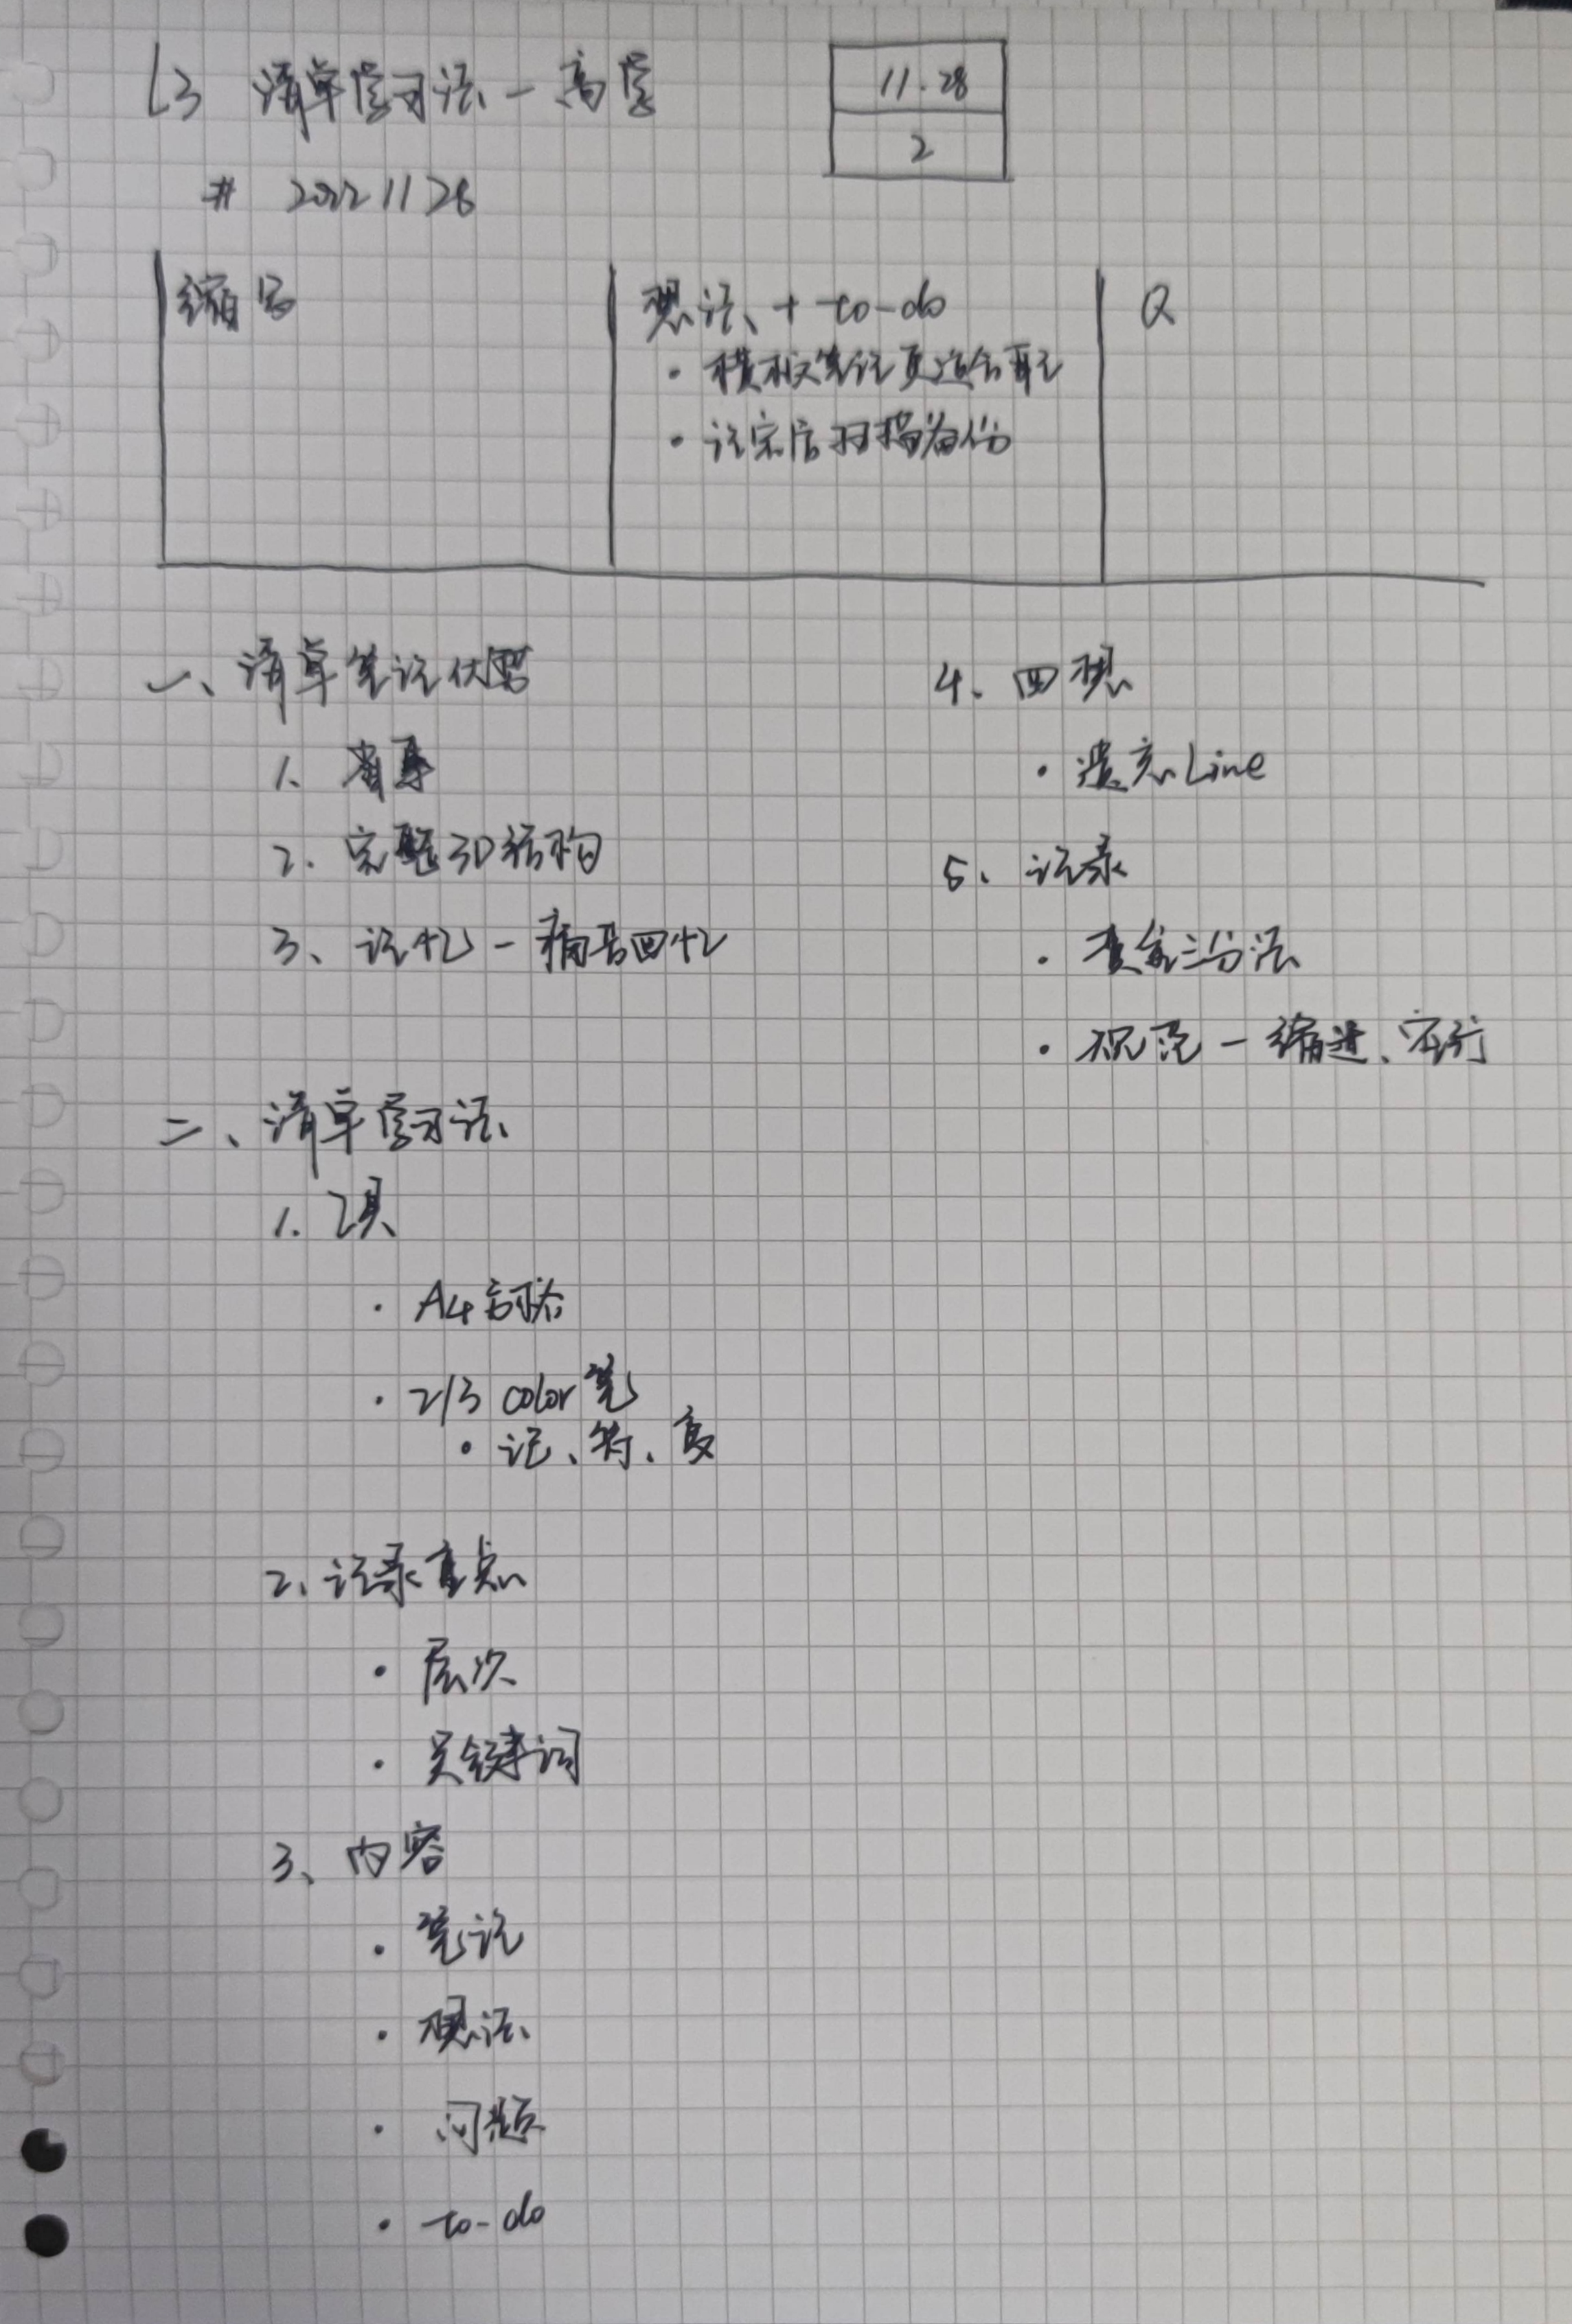 L3 清单学习法 - 高层
11.28
2
# 20221128
缩写
想法 + to-do
· 横板笔记更适合我
· 记完后扫描备份
Q
一、清单笔记优器
1.
2. 完整3D结构
3、记忆 - 痛苦回忆
二、清单学习法
1. 工具
· A4活页
· 2/3 color笔
· 记、符、
2、记录重点
· 层次
· 关键词
3、内容
· 笔记
· 想法
· 问题
· to-do
4、回想
· 遗忘Line
5、记录
· 三分法
· 规范 - 缩进、空行